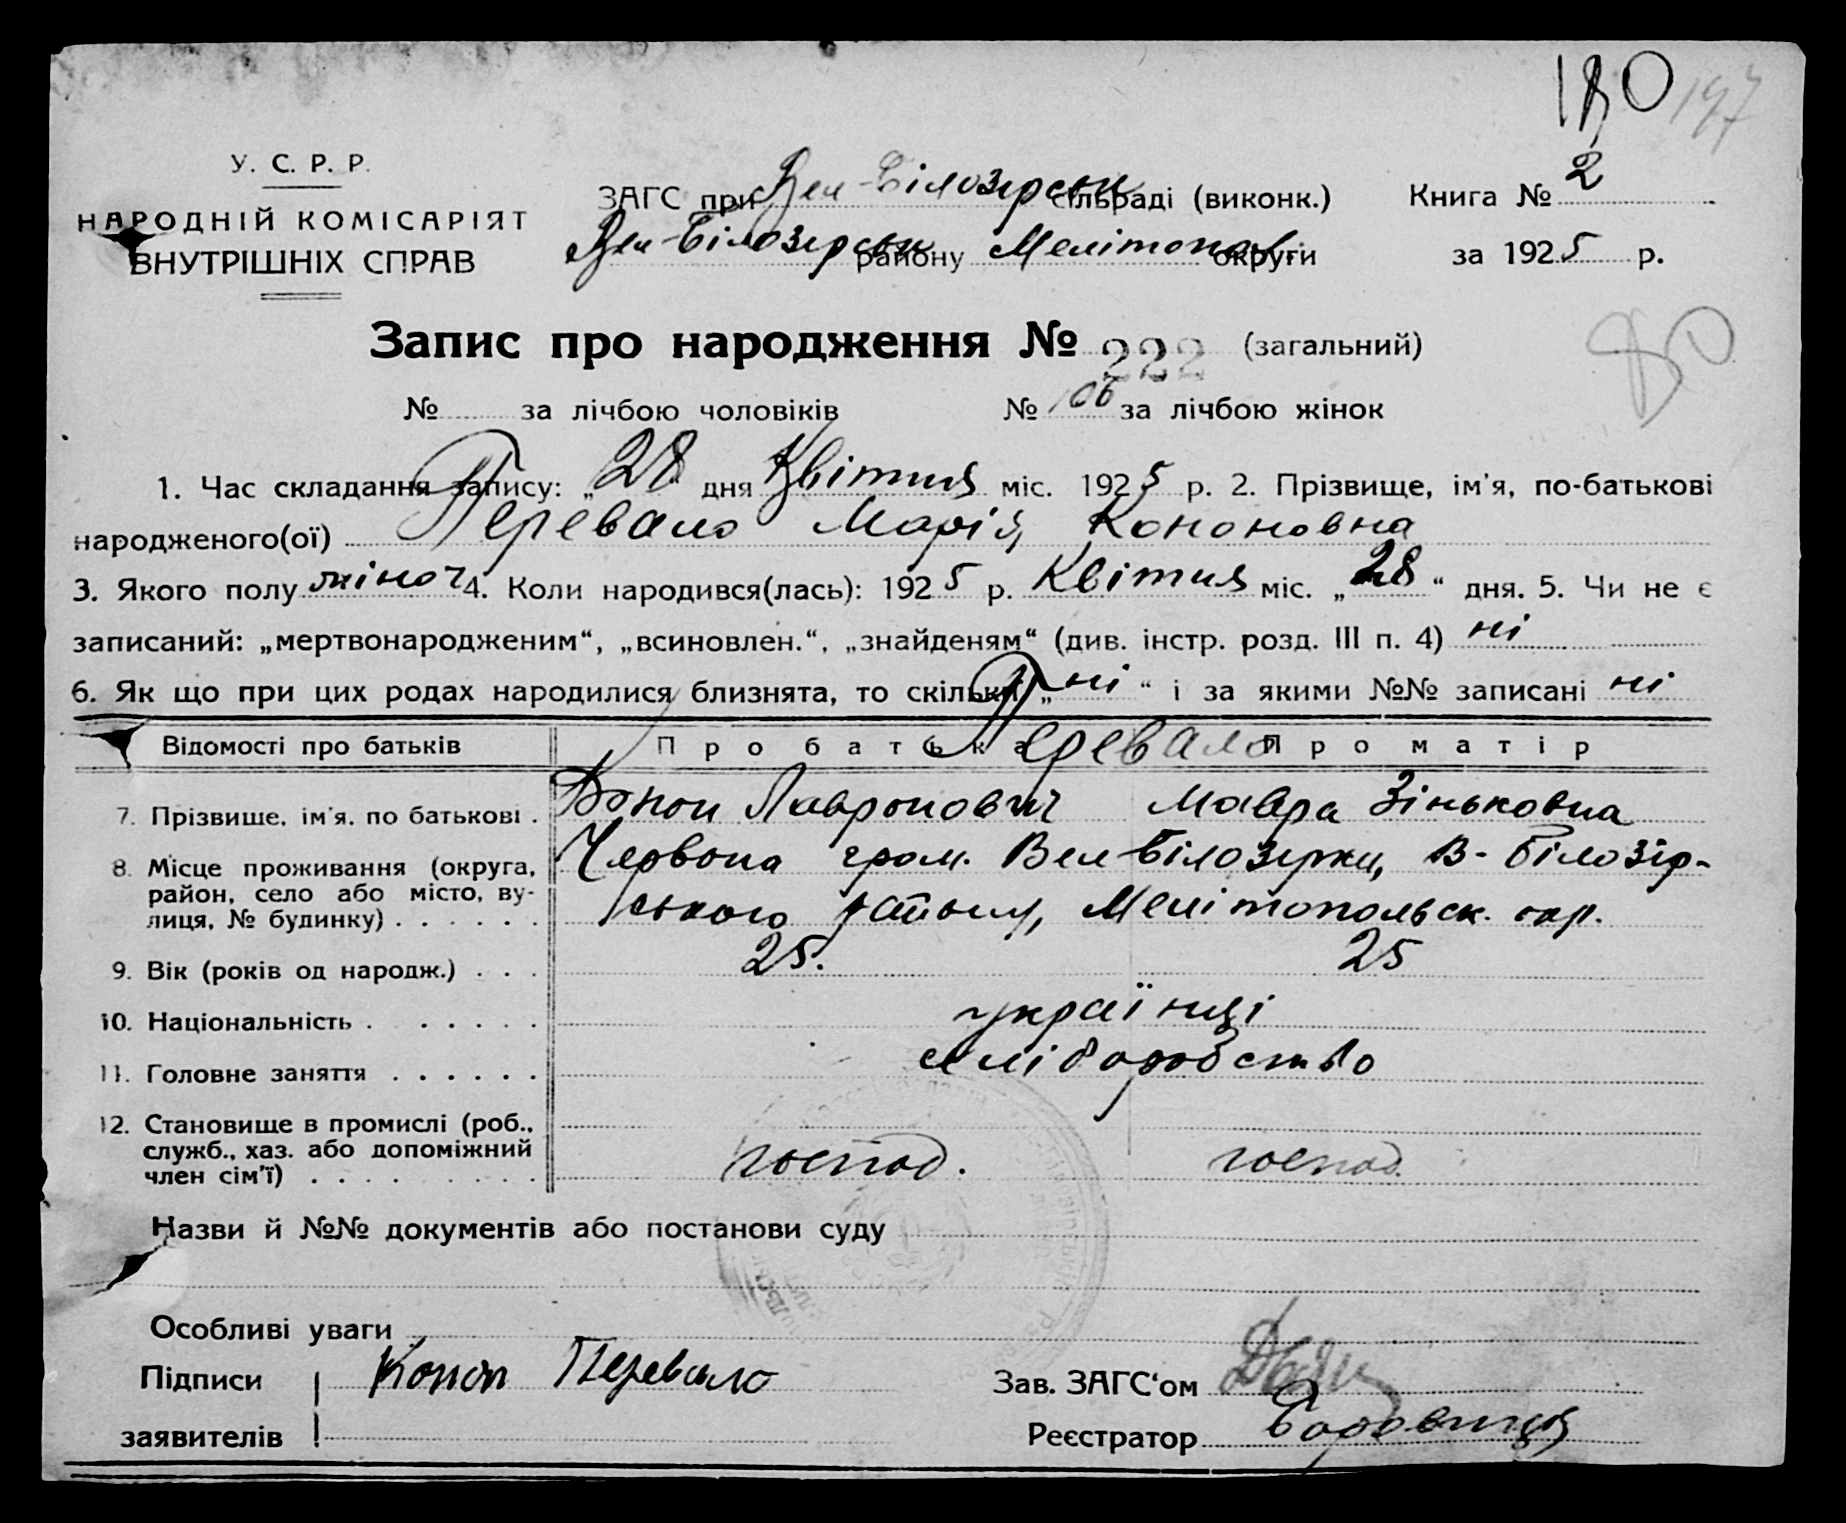 180 197
У. С. Р. Р.
НАРОДНІЙ КОМІСАРІЯТ
ВНУТРІШНІХ СПРАВ
ЗАГС при Вел-Білозірськ сільраді (виконк.) Книга № 2
Вел-Білозірськ району Мелітопол. округи за 1925 р.
Запис про народження № 222 (загальний)
80
№ за лічбою чоловіків № 106 за лічбою жінок
1. Час складання запису: „28“ дня Квітня міс. 1925 р. 2. Прізвище, ім'я, по-батькові
народженого(ої) Перевало Марія Кононовна
3. Якого полу жіноч 4. Коли народився(лась): 1925 р. Квітня міс. „28“ дня. 5. Чи не є
записаний: „мертвонародженим“, „всиновлен.“, „знайденям“ (див. інстр. розд. III п. 4) ні
6. Як що при цих родах народилися близнята, то скільки „ні“ і за якими №№ записані ні
Відомості про батьків Про батька Про матір
Перевало
7. Прізвище, ім'я, по батькові . Конон Лавронович Мавра Зіньковна
8. Місце проживання (округа, район, село або місто, вулиця, № будинку) . . . . . . Червона гром. Вел-Білозірки, В-Білозір-
ського району, Мелітопольськ. окр.
9. Вік (років од народж.) . . . 25. 25
10. Національність . . . . . . . українці
11. Головне заняття . . . . . . хліборобство
12. Становище в промислі (роб., служб., хаз. або допоміжний член сім'ї) . . . . . . . . . господ. господ.
Назви й №№ документів або постанови суду
Особливі уваги
Підписи Конон Перевало Зав. ЗАГС‘ом
заявителів Реєстратор